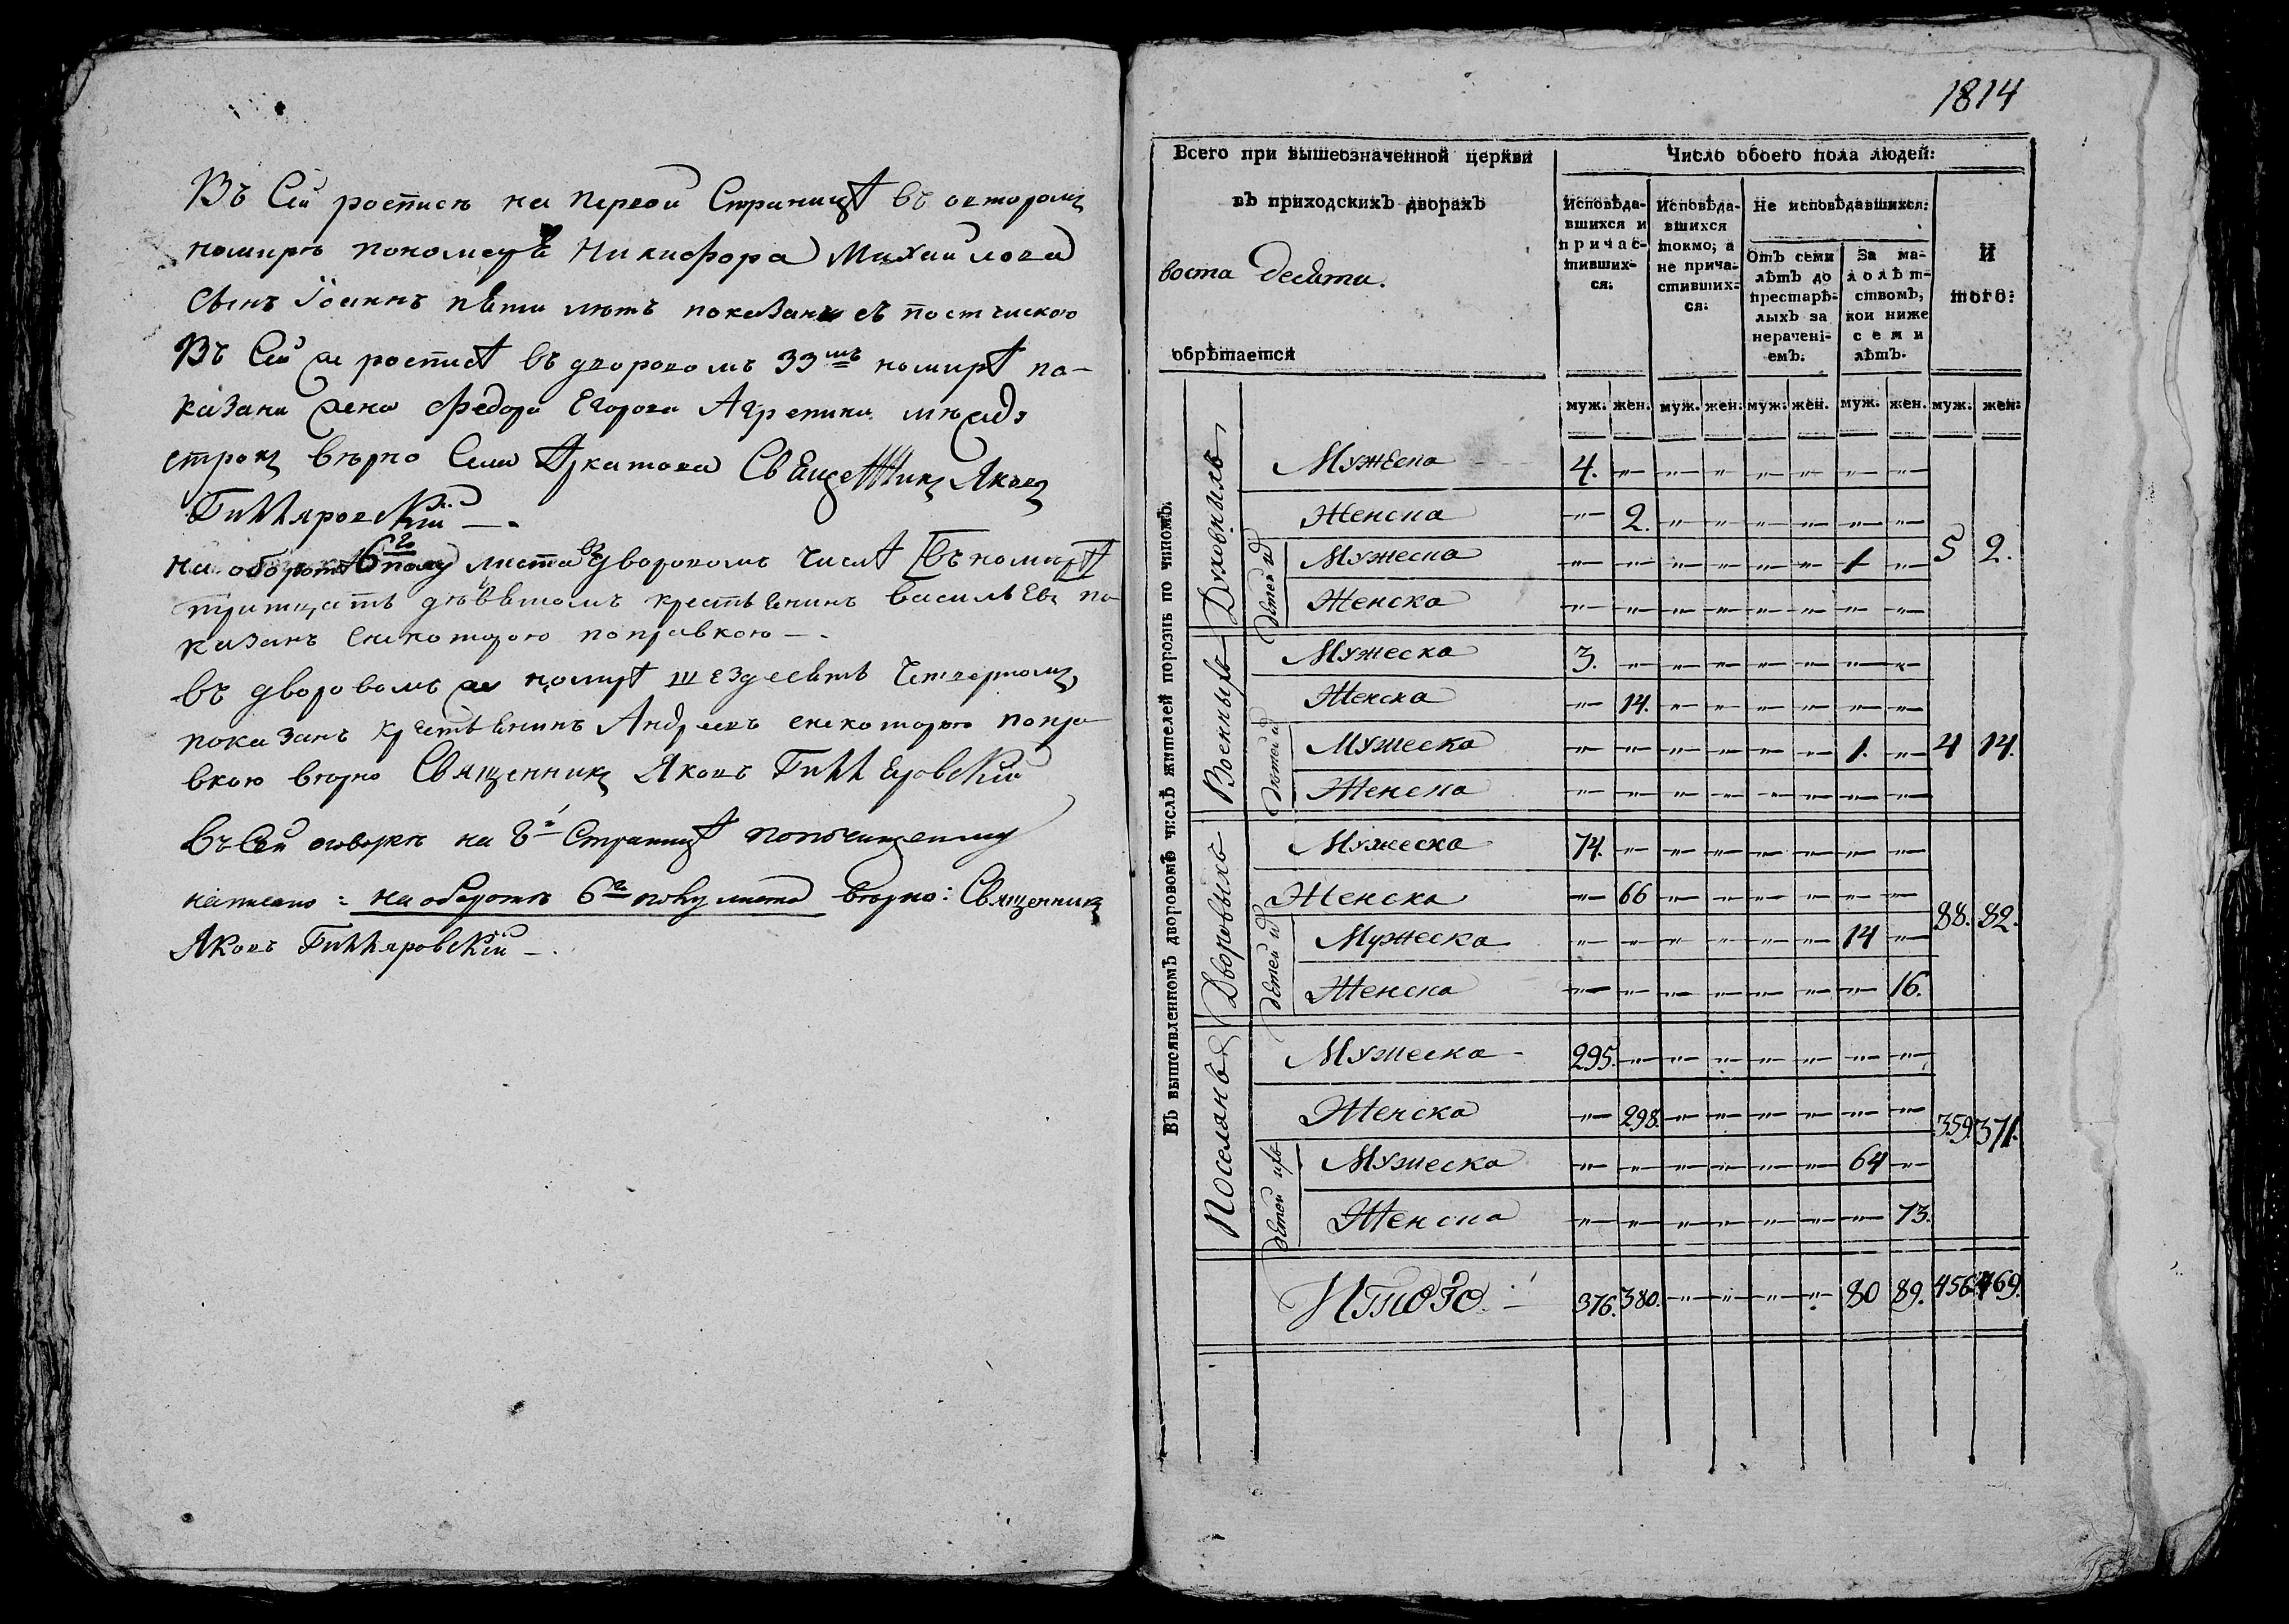 Въ Сей росписи на первой Страницѣ въ овторомъ
номирѣ пономаря Никифора Михаилова
Сынъ Iоаннъ пѣти лѣтъ показанъ съ постчискою
Въ Сей же росписѣ въ дворовомъ 33мъ номирѣ по-
казана жена Федора Егорова Агрепина между
строкъ вѣрно Села Аркатова Священникъ Яковъ
Гиляровскiй —.
на оборотѣ 6го полу листа въ дворовомъ числѣ въ номирѣ
тритцать девѣтомъ крестьенинъ васильевъ по
казанъ снекоторою поправкою —.
въ дворовомъ же номирѣ шездесѣтъ Четвертомъ
показанъ крестьенинъ Андреевъ снекоторою попра
вкою вѣрно Священникъ Яковъ Гиляровскiй
въ Сей оговоркѣ на 8й Страницѣ поподчищенному
написано: на оборотѣ 6го полу листа вѣрно: Священникъ
Яковъ Гиляровскiй —.
1814
Всего при вышеозначенной церкви
въ приходскихъ дворахъ
воста десѣти.
обрѣтается
Число обоего пола людей:
Исповѣда-
вшихся и
причас-
тивших-
ся:
Исповѣда-
вшихся
токмо; а
не прича-
стивших-
ся:
Не исповѣдавшихся:
Отъ семи
лѣтъ до
престарѣ-
лыхъ за
нерачені-
емъ:
За ма-
лолѣт-
ствомъ,
кои ниже
семи
лѣтъ.
И
того:
муж. жен. муж. жен. муж. жен. муж. жен. муж. жен:
Въ вышеявленномъ дворовомъ числѣ жителей порознь по чиномъ:
Духовныхъ
Мужеска 4. „ „ „ „ „ „ „
Женска „ 2. „ „ „ „ „ „
детей их
Мужеска „ „ „ „ „ „ 1 „
5 2.
Женска „ „ „ „ „ „ „ „
Военныхъ
Мужеска 3. „ „ „ „ „ „ „
Женска „ 14. „ „ „ „ „ „
детей их
Мужеска „ „ „ „ „ „ 1. „
4 14.
Женска „ „ „ „ „ „ „ „
Дворовыхъ
Мужеска 74. „ „ „ „ „ „ „
Женска „ 66 „ „ „ „ „ „
88. 82.
детей их
Мужеска „ „ „ „ „ „ 14 „
Женска „ „ „ „ „ „ „ 16.
Поселянъ
Мужеска 295. „ „ „ „ „ „ „
Женска „ 298. „ „ „ „ „ „
359. 371.
детей ихъ
Мужеска „ „ „ „ „ „ 64 „
Женска „ „ „ „ „ „ „ 73.
Итого 376. 380. „ „ „ „ 80 89. 456. 469.